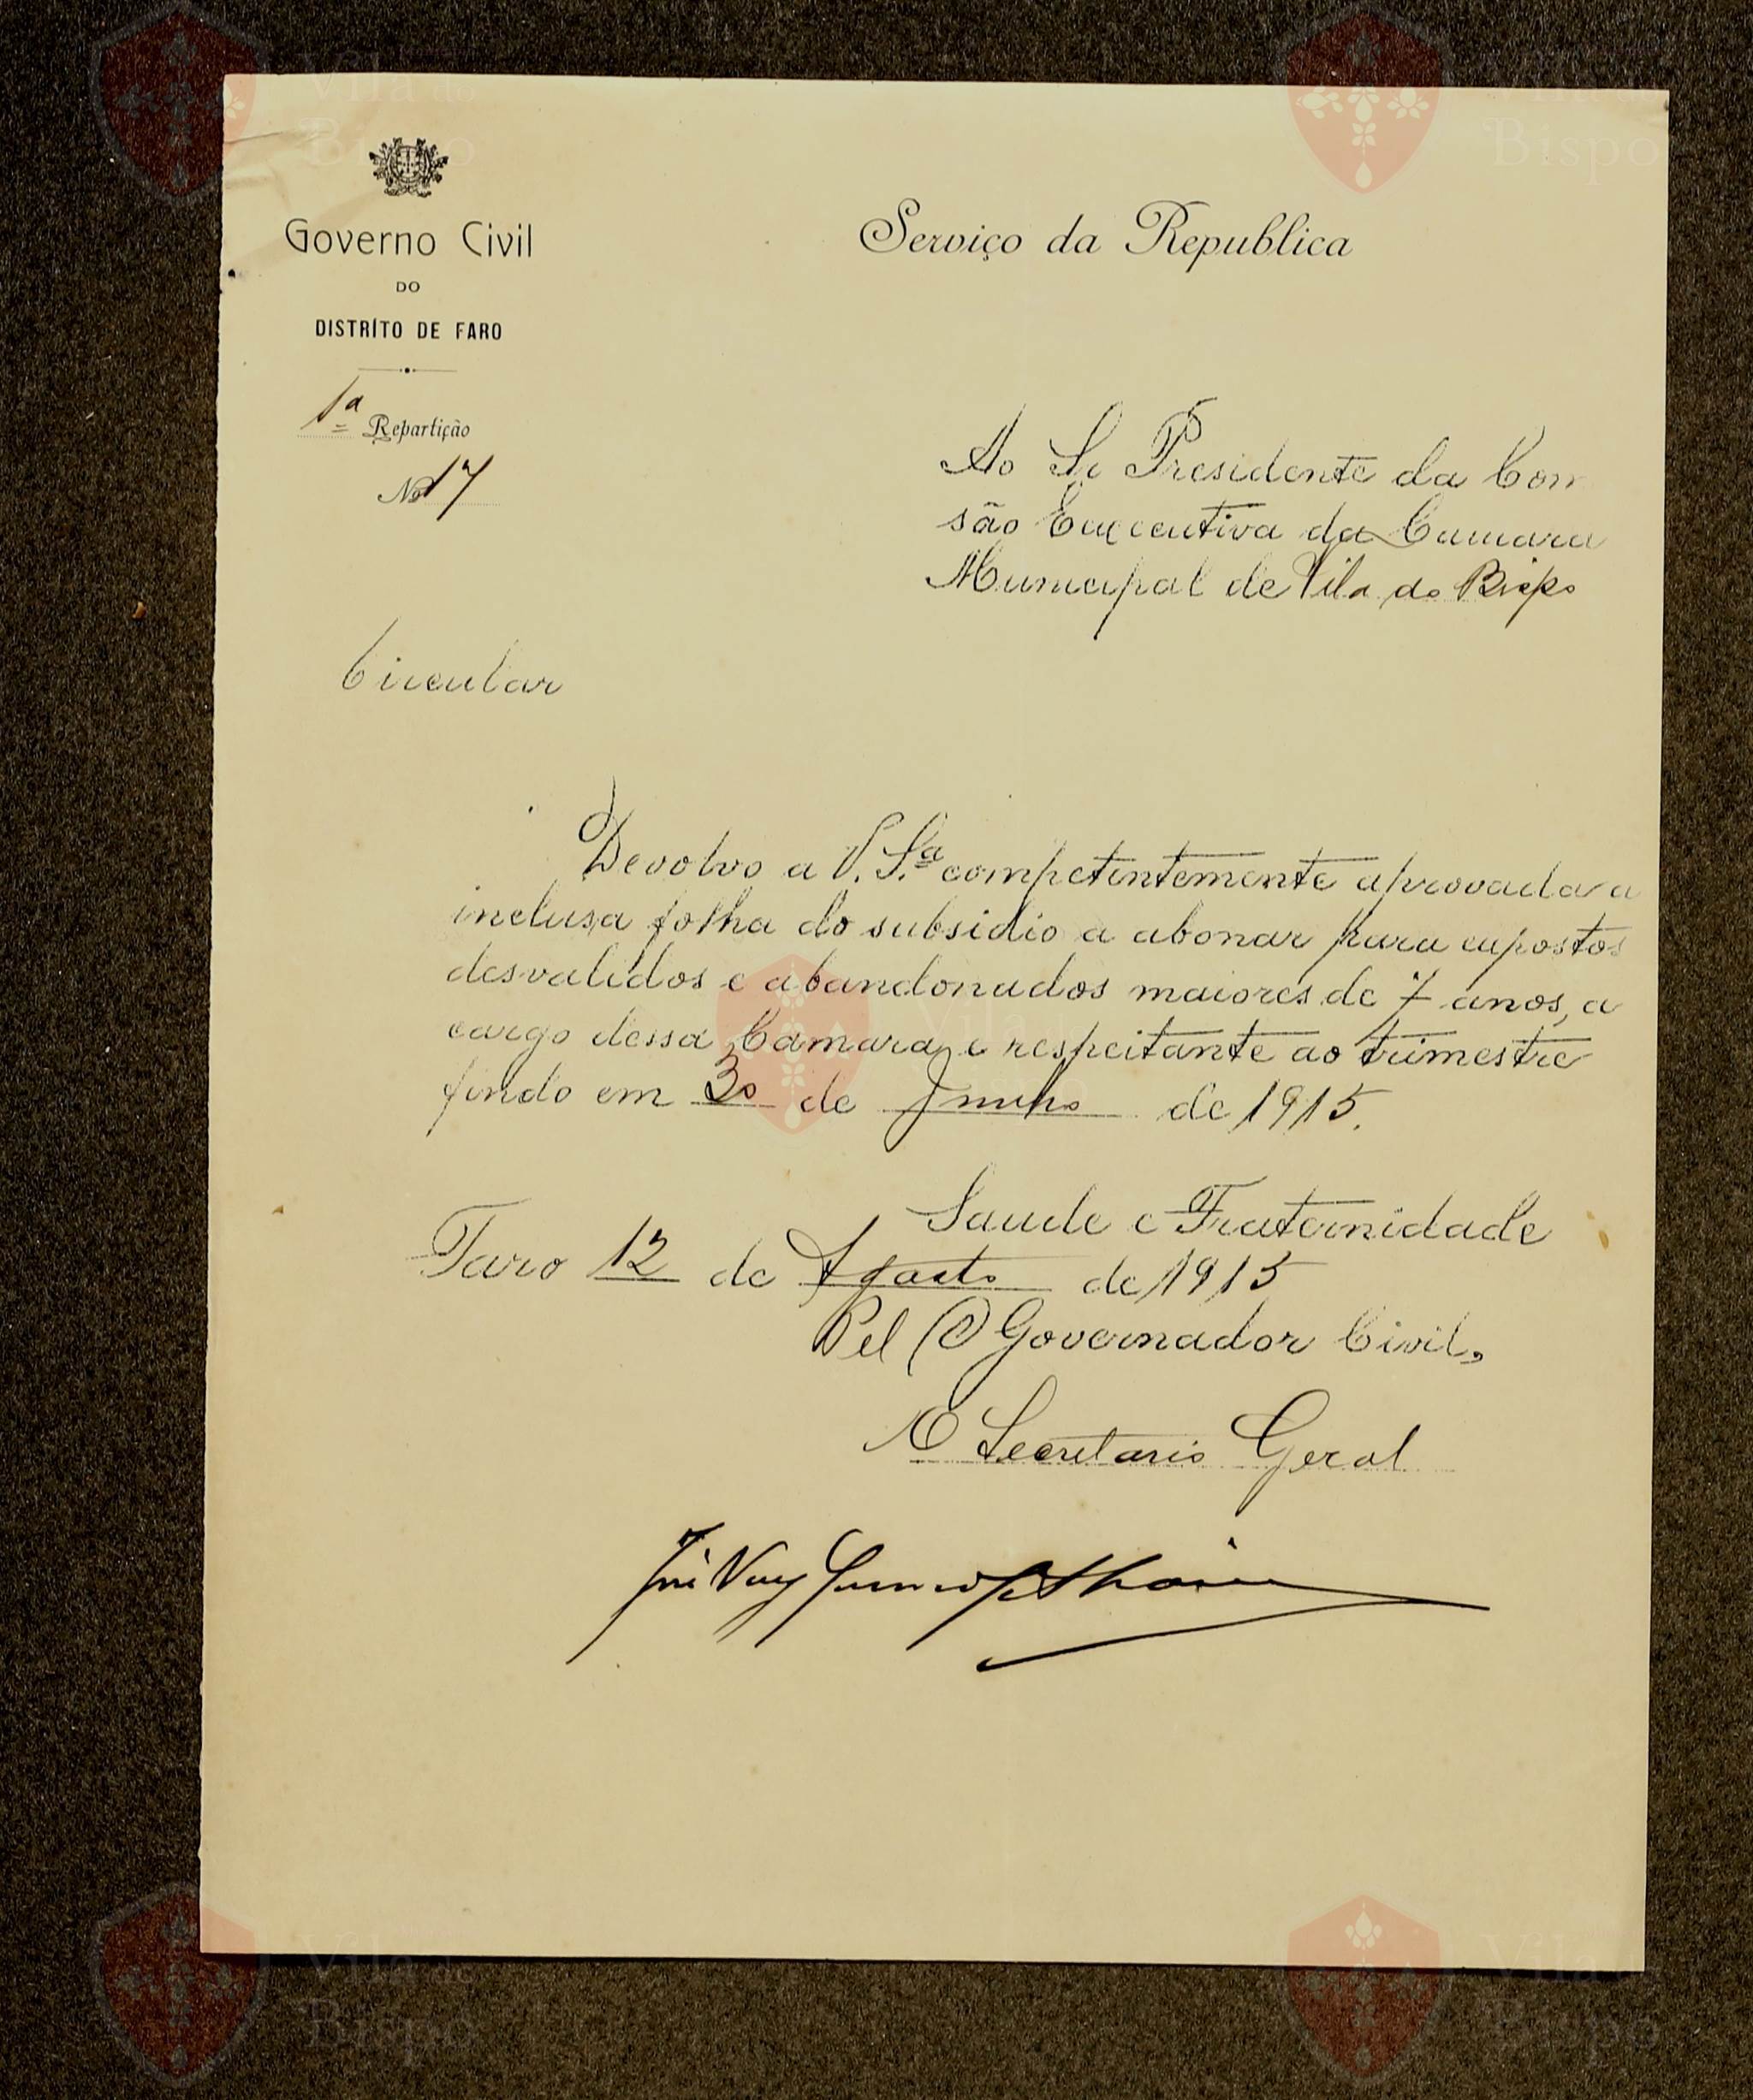 Governo Civil
DO
DISTRÍTO DE FARO
1ª Repartição
Nº 17
Serviço da Republica
Ao Sr Presidente da Com
são Executiva da Camara
Municipal de Vila do Bispo
Circular
Devolvo a V. Sª competentemente aprovada a
inclusa folha do subsidio a abonar para expostos
desvalidos e abandonados maiores de 7 anos, a
cargo dessa Camara, e respeitante ao trimestre
findo em 30 de Junho de 1915.
Saude e Fraternidade
Faro 12 de Agosto de 1915
Pel O Governador Civil,
O Secretario Geral
Vila do
Bispo